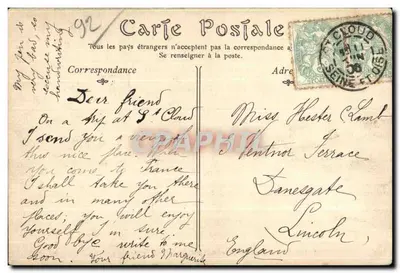 892
Carte Postale
Tous les pays étrangers n'acceptent pas la correspondance a
Se renseigner à la poste.
Correspondance
Adre
My pen is
very bad, so
excuse my
handwriting
Dear friend
On a trip at St Cloud
I send you a
this nice place.
you come to France
I shall take you there
and in many other
places; you will enjoy
yourself I'm sure,
Good bye write to me
soon. Your friend Marguerite
Miss Hester C Lamb
Ventnor Terrace
Danesgate
Lincoln,
England
ST CLOUD
SEINE ET OISE
CPAPHIL